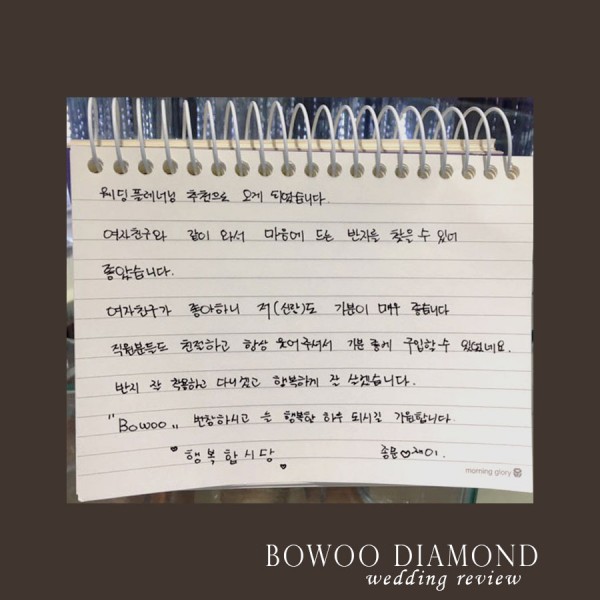 웨딩플래너님 추천으로 오게 되었습니다.
여자친구와 같이 와서 마음에 드는 반지를 찾을 수 있어
좋았습니다.
여자친구가 좋아하니 저(신랑)도 기분이 매우 좋습니다
직원분들도 친절하고 항상 웃어주셔서 기분 좋게 구입할 수 있었네요.
반지 잘 착용하고 다니겠고 행복하게 잘 살겠습니다.
"Bowoo" 번창하시고 늘 행복한 하루 되시길 기원합니다.
♥행복합시당♥
종윤♡재이.
morning glory
BOWOO DIAMOND
wedding review